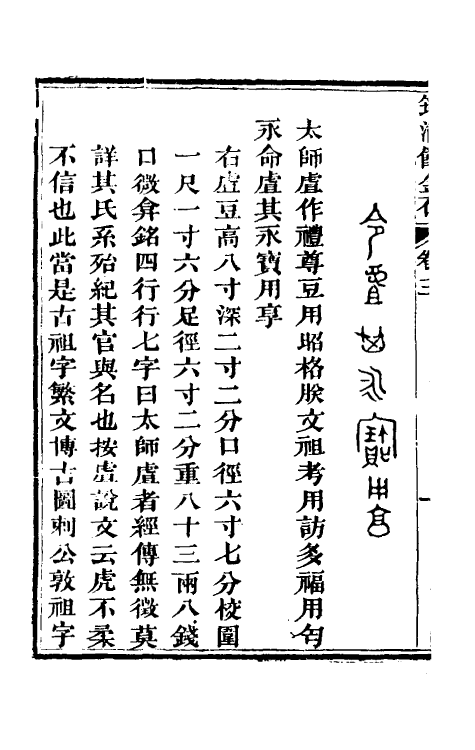 卷三
令虘其永寶用亯
太師虘作禮尊豆用昭格朕文祖考用訪多福用匄
永命虘其永寶用享
右虘豆高八寸深二寸二分口徑六寸七分校圍
一尺一寸六分足徑六寸二分重八十三兩八錢
口微弇銘四行行七字曰太師虘者經傳無徵莫
詳其氏系殆紀其官與名也按虘說文云虎不柔
不信也此當是古祖字繁文博古圖刺公敦祖字